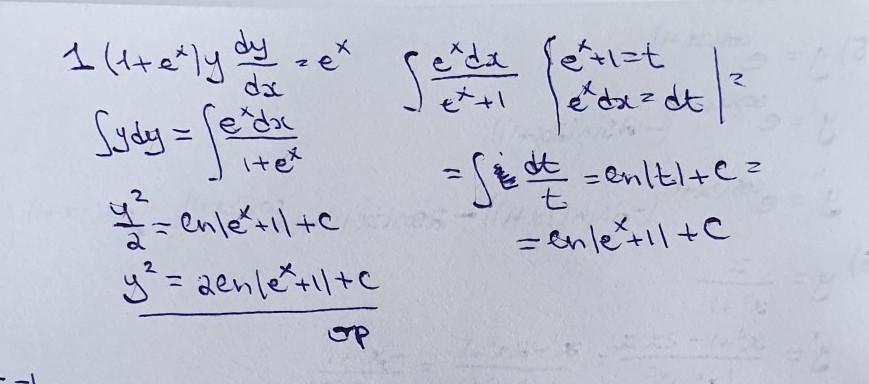 1 (1+eˣ)y dy/dx = eˣ
∫ydy = ∫ eˣdx/1+eˣ
y²/2 = ln|eˣ+1|+C
y² = 2ln|eˣ+1|+C
∫ eˣdx/eˣ+1 { eˣ+1=t
eˣdx=dt | =
= ∫ dt/t = ln|t|+C =
= ln|eˣ+1|+C